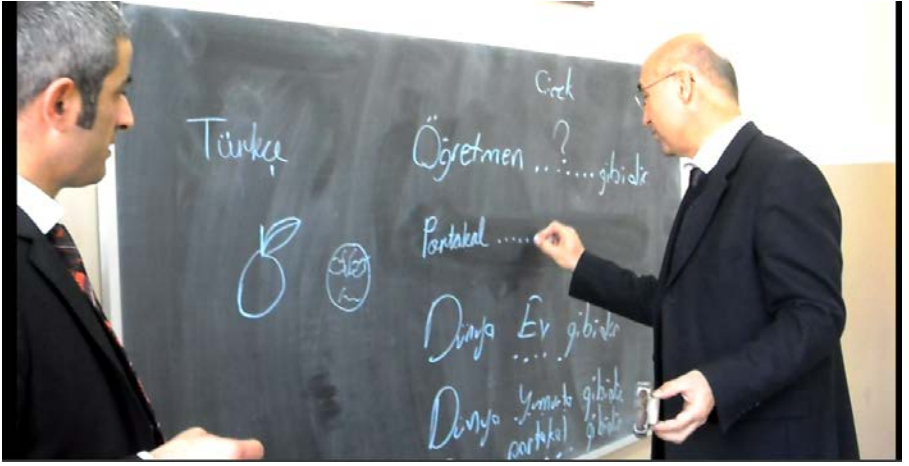 Türkçe
Çiçek
?
Öğretmen ........ gibidir
Portakal ......
Dünya Ev gibidir
Dünya Yumurta gibidir
portakal gibidir